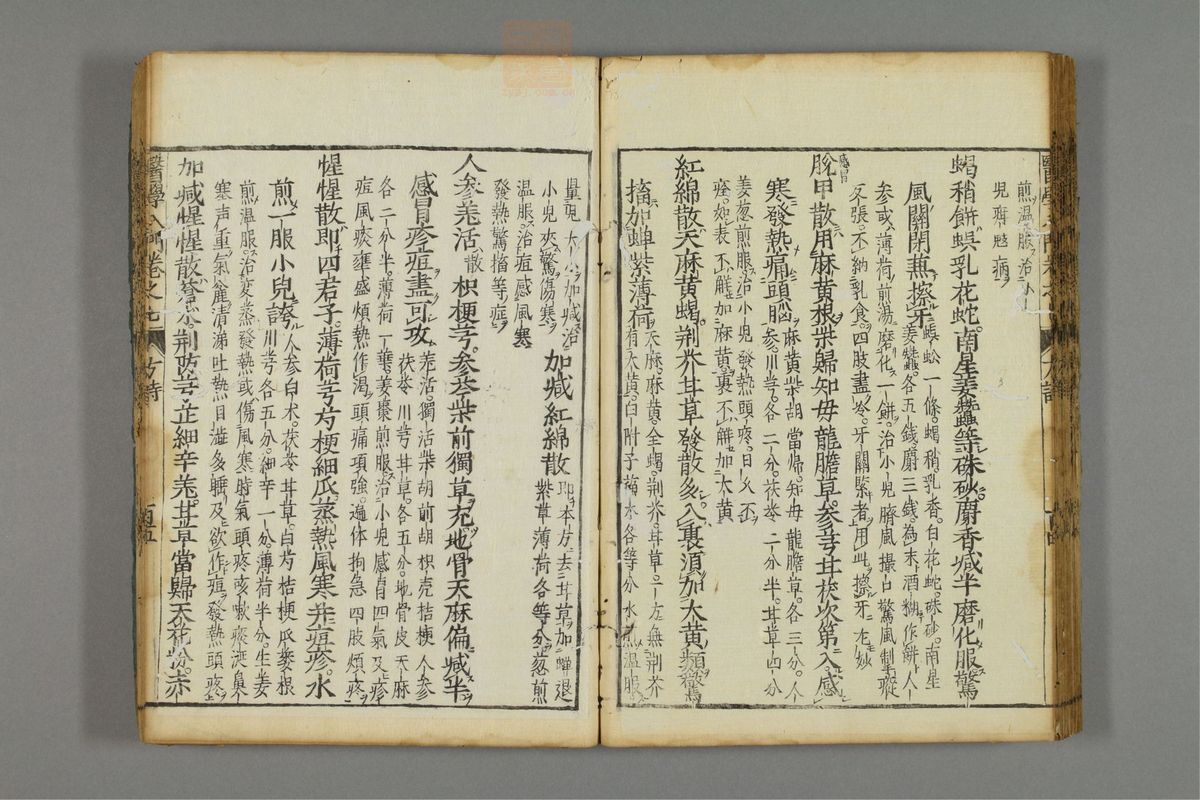 煎温服治小
兒臍
病
蝎稍餅蜈乳花蛇南星姜蠶等硃砂麝香減半磨化服驚
風關閉兼擦牙
蜈蚣一條蝎稍乳香白花蛇硃砂南星
姜蠶各五錢麝三錢為末酒糊作餅人
參或薄荷煎湯磨化一餅治小兒臍風撮口驚風制
冬張不納乳食四肢盡冷牙關緊者用此擦牙尤妙
脫甲散用麻黄根柴歸知母龍膽草參芎甘茯次第入感
冒
寒發熱痛頭腦
麻黄柴胡當歸知母龍膽草各三分人
參川芎各二分茯苓二分半甘草四分
姜葱煎服治小兒發熱頭疼日久不
痊如表不解加麻黄裏不解加大黄
紅綿散天麻黄蝎荆芥甘草發散多入裏須加大黄類驚
搐加蟬紫薄荷
天麻麻黄全蝎荆芥甘草一方無荆芥
有大黄白附子蘇木各等分水煎温服
量兒大小加減治
小兒夾驚傷寒
加減紅綿散
即本方去甘草加蟬退
紫草薄荷各等分葱煎
温服治痘感風寒
發熱驚搐等症
人參羌活散枳梗芎參茯柴前獨草充地骨天麻偏減半
感冒疹痘盡可攻
羌活獨活柴胡前胡枳壳桔梗人參
茯苓川芎甘草各五分地骨皮天麻
各二分半薄荷一葉姜棗煎服治小兒感冒四氣及疹
痘風痰壅盛煩熱作渴頭痛項強遍体拘急四肢煩疼
惺惺散即四君子薄荷芎芍梗細瓜蒸熱風寒并痘疹水
煎一服小兒誇
人參白术茯苓甘草白芍桔梗瓜蔞根
川芎各五分細辛一分薄荷半分生姜
煎温服治变蒸發熱或傷風寒時氣頭疼咳嗽痰涎鼻
寒声重氣麁清涕吐熱目澁多睡及欲作痘發熱頭疼
加減惺惺散蒼术荆防芎芷細辛羌甘草當歸天花粉赤
醫學入門卷之七
方詩